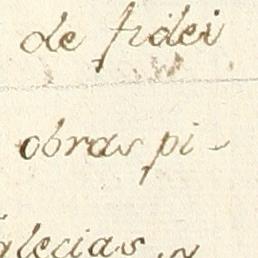 de fidei
obras pi-
glecias, y